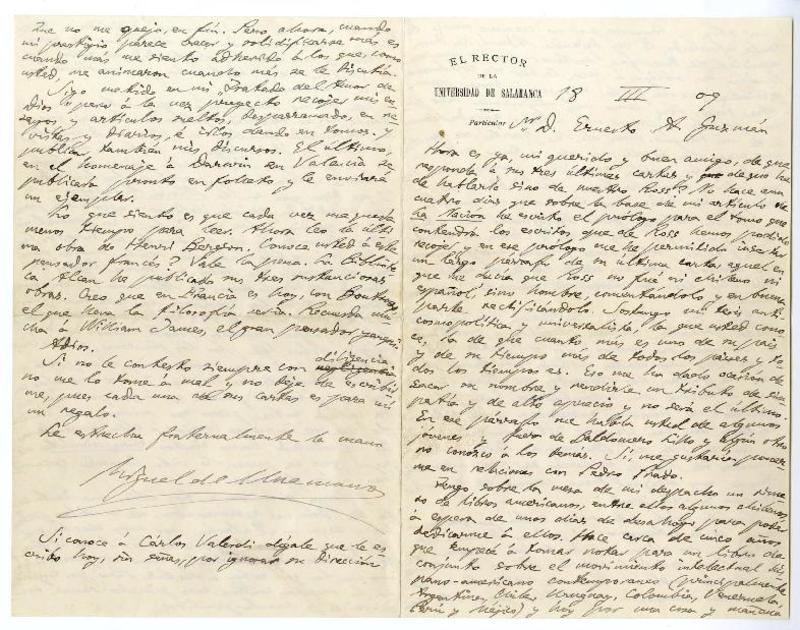 EL RECTOR
DE LA
UNIVERSIDAD DE SALAMANCA 18 III 09
Particular Sr. D. Ernesto A. Guzmán
Hora es ya, mi querido y buen amigo, de que
responda á sus tres últimas cartas y que de que he
de hablarle sino de nuestro Ross? No hace aun
cuatro días que sobre la base de mi artículo de
La Nación he escrito el prólogo para el tomo que
contendrá los escritos que de Ross hemos podido
recojer y en ese prólogo me he permitido insertar
un largo párrafo de su última carta, aquel en
que me decía que Ross no fué ni chileno ni
español, sino hombre, comentándolo y en buena
parte rectificándolo. Sostengo mi tesis anti
cosmopolítica y universalista, la que usted cono
ce, la de que cuanto más es uno de su país
y de su tiempo más de todos los países y to
dos los tiempos es. Eso me ha dado ocasión de
sacar su nombre y rendirle un tributo de sim
patía y de alto aprecio y no será el último.
En ese párrafo me habla usted de algunos
jóvenes y fuera de Baldomero Lillo y algún otro
no conozco á los demás. Sí, me gustaría poner
me en relaciones con Pedro Prado.
Tengo sobre la mesa de mi despacho un núme
ro de libros americanos, entre ellos algunos chilenos,
á espera de unos días de desahogo para poder
dedicarme á ellos. Hace cerca de cinco años
que empecé á tomar notas para un libro de
conjunto sobre el movimiento intelectual his
pano-americano contemporáneo (principalmente
Argentina, Chile, Uruguay, Colombia, Venezuela,
Perú y Méjico) y hoy por una cosa y mañana
Que no me quejo, en fin. Pero ahora, cuando
mi prestigio parece crecer y solidificarse más es
cuando más me siento adherido á los que, como
usted, me animaron cuando más se le discutía.
Sigo metido en mi "Tratado del Amor de
Dios" pero á la vez proyecto recojer mis en
sayos y artículos sueltos, desparramados, en re
vistas y diarios, é irlos dando en tomos. Y
publicar también mis discursos. El último,
en el homenaje á Darwin en Valencia se
publicará pronto en folleto, y le enviaré
un ejemplar.
Lo que siento es que cada vez me queda
menos tiempo para leer. Ahora leo la últi
ma obra de Henri Bergson. Conoce usted á este
pensador francés? Vale la pena. La Biblioteca
Alcan ha publicado sus tres sustanciosas
obras. Creo que en Francia es hoy, con Boutroux,
el que lleva la filosofía seria. Recuerda mu
cho á William James, el gran pensador yanqui.
Adios.
Si no le contesto siempre con diligencia
no me lo tome á mal y no deje de escribir
me, pues cada una de sus cartas es para mí
un regalo.
Le estrecha fraternalmente la mano
Miguel de Unamuno
Si conoce á Cárlos Valeroli dígale que le es
cribo hoy, sin señas, por ignorar su dirección